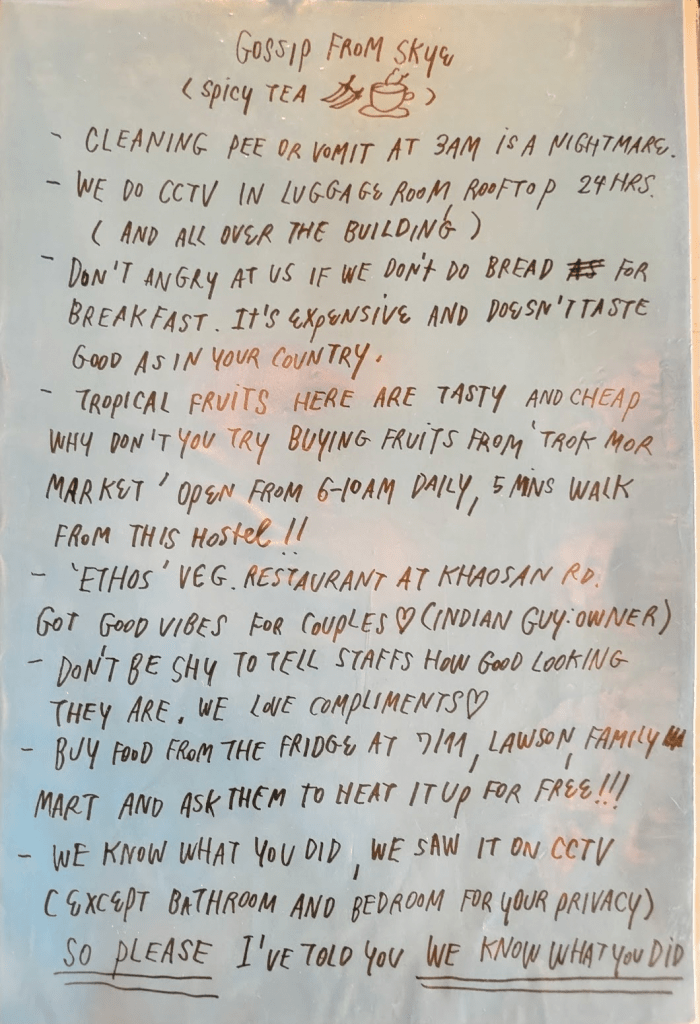 GOSSIP FROM SKYE
(SPICY TEA )
- CLEANING PEE OR VOMIT AT 3AM IS A NIGHTMARE.
- WE DO CCTV IN LUGGAGE ROOM, ROOFTOP 24 HRS.
( AND ALL OVER THE BUILDING )
- DON'T ANGRY AT US IF WE DON't DO BREAD FOR
BREAKFAST. IT'S EXPENSIVE AND DOESN'T TASTE
GOOD AS IN YOUR COUNTRY.
- TROPICAL FRUITS HERE ARE TASTY AND CHEAP
WHY DON'T YOU TRY BUYING FRUITS FROM 'TROK MOR
MARKET' OPEN FROM 6-10AM DAILY, 5 MINS WALK
FROM THIS HOSTEL !!
- 'ETHOS' VEG. RESTAURANT AT KHAOSAN RD.
GOT GOOD VIBES FOR COUPLES ♡ (INDIAN GUY:OWNER)
- DON'T BE SHY TO TELL STAFFS HOW GOOD LOOKING
THEY ARE. WE LOVE COMPLIMENTS♡
- BUY FOOD FROM THE FRIDGE AT 7/11, LAWSON, FAMILY
MART AND ASK THEM TO HEAT IT UP FOR FREE!!!
- WE KNOW WHAT YOU DID, WE SAW IT ON CCTV
(EXCEPT BATHROOM AND BEDROOM FOR YOUR PRIVACY)
SO PLEASE I'VE TOLD YOU WE KNOW WHAT YOU DID